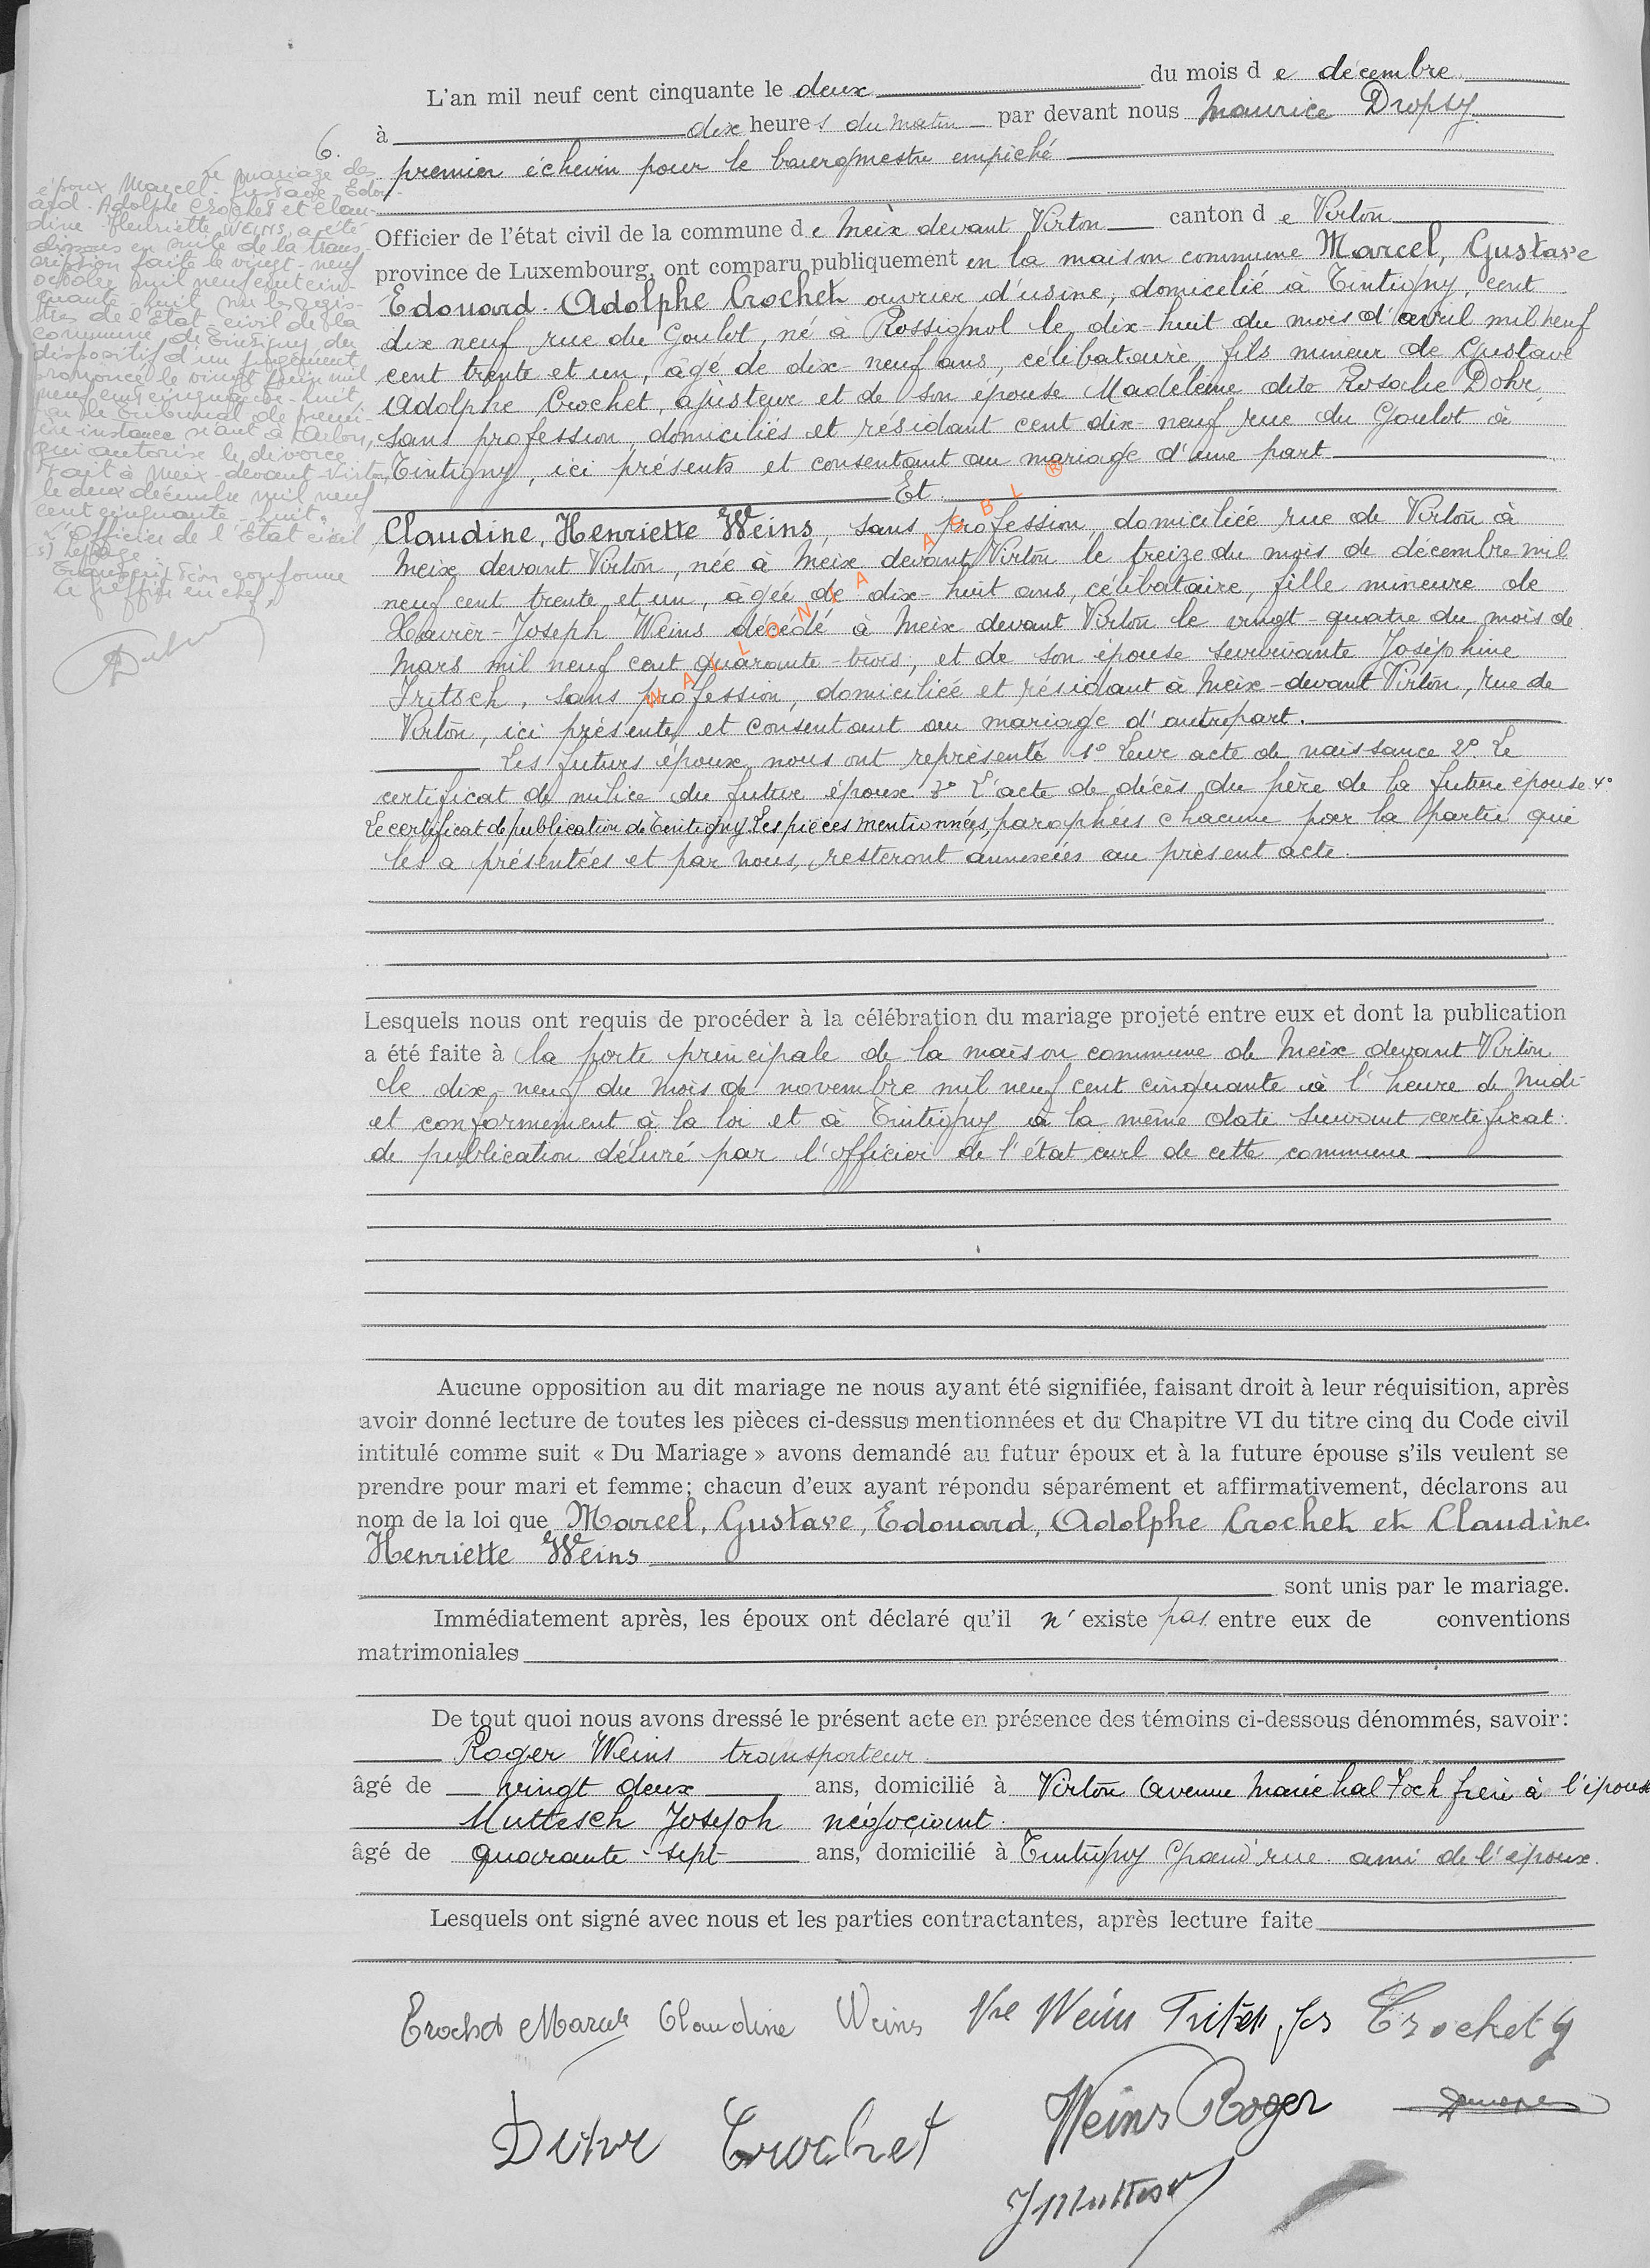 L'an mil neuf cent cinquante le deux du mois d e décembre
à dix heure s du matin par devant nous Maurice Dropsy
premier échevin pour le bourgmestre empêché
Officier de l'état civil de la commune d e Meix devant Virton canton d e Virton
province de Luxembourg, ont comparu publiquement en la maison commune Marcel, Gustave
Edouard. Adolphe Crochet ouvrier d'usine, domicilié à Tintigny, cent
dix neuf rue du Goulot, né à Rossignol le dix-huit du mois d'avril mil neuf
cent trente et un, âgé de dix-neuf ans, célibataire, fils mineur de Gustave
Adolphe Crochet, ajusteur et de son épouse Madeleine dite Rosalie Dohr,
sans profession, domiciliés et résidant cent dix-neuf rue du Goulot à
Tintigny, ici présents et consentant au mariage d'une part
Et
Claudine, Henriette Weins, sans profession, domiciliée rue de Virton à
Meix devant Virton, née à Meix devant Virton le treize du mois de décembre mil
neuf cent trente et un, âgée de dix-huit ans, célibataire, fille mineure de
Xavier-Joseph Weins décédé à Meix devant Virton le vingt-quatre du mois de
Mars mil neuf cent quarante-trois, et de son épouse survivante Joséphine
Fritsch, sans profession, domiciliée et résidant à Meix-devant Virton, rue de
Virton, ici présente, et consentant au mariage d'autre part.
Les futurs époux nous ont représenté 1° Leur acte de naissance 2° Le
certificat de milice du futur époux 3° L'acte de décès du père de la future épouse 4°
Le certificat de publication de Tintigny Les pièces mentionnées, paraphées chacune par la partie qui
les a présentées et par nous, resteront annexées au présent acte.
Lesquels nous ont requis de procéder à la célébration du mariage projeté entre eux et dont la publication
a été faite à la porte principale de la maison commune de Meix devant Virton
le dix-neuf du mois de novembre mil neuf cent cinquante à l'heure de midi
et conformément à la loi et à Tintigny à la même date suivant certificat
de publication délivré par l'officier de l'état civil de cette commune
Aucune opposition au dit mariage ne nous ayant été signifiée, faisant droit à leur réquisition, après
avoir donné lecture de toutes les pièces ci-dessus mentionnées et du Chapitre VI du titre cinq du Code civil
intitulé comme suit « Du Mariage » avons demandé au futur époux et à la future épouse s'ils veulent se
prendre pour mari et femme; chacun d'eux ayant répondu séparément et affirmativement, déclarons au
nom de la loi que Marcel, Gustave, Edouard, Adolphe Crochet et Claudine
Henriette Weins
sont unis par le mariage.
Immédiatement après, les époux ont déclaré qu'il n' existe pas entre eux de conventions
matrimoniales
De tout quoi nous avons dressé le présent acte en présence des témoins ci-dessous dénommés, savoir:
Roger Weins transporteur
âgé de vingt deux ans, domicilié à Virton Avenue Maréchal Foch frère à l'épouse
Muttesch Joseph négociant
âgé de quarante-sept ans, domicilié à Tintigny Grand'rue ami de l'époux.
Lesquels ont signé avec nous et les parties contractantes, après lecture faite
Crochet Marcel Claudine Weins Vve Weins Fritsch Jos Crochet G
Dohr Crochet Weins Roger
J Muttesch
6.
Le mariage des
époux Marcel-Gustave-Edou-
ard-Adolphe Crochet et Clau-
dine Henriette WEINS, a été
dissous en suite de la trans-
cription faite le vingt-neuf
octobre mil neuf cent cin-
quante-huit sur les regis-
tres de l'Etat-civil de la
commune de Tintigny du
dispositif d'un jugement
prononcé le vingt juin mil
neuf cent cinquante-huit
par le tribunal de premi-
ère instance séant à Arlon,
qui autorise le divorce.
Fait à Meix-devant-Virton,
le deux décembre mil neuf
cent cinquante-huit.
L'Officier de l'Etat civil
(s) Lepage
Transcription conforme
Le greffier en chef,
WALLONIA ASBL ®